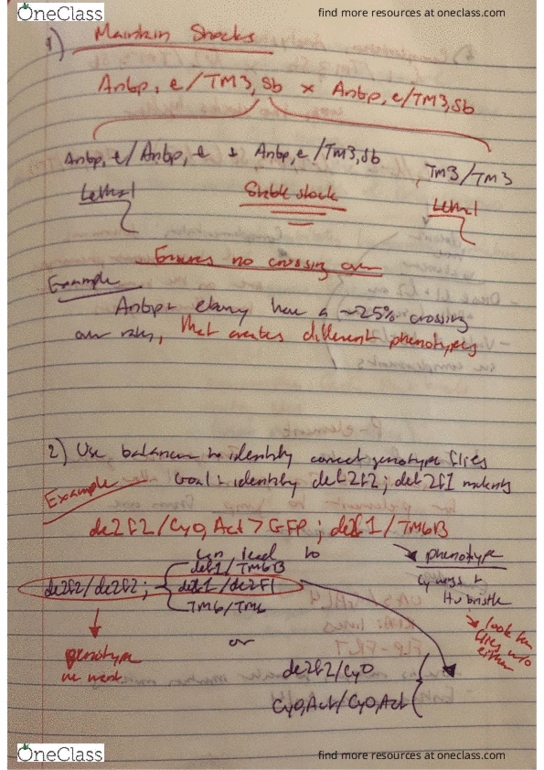 OneClass
find more resources at oneclass.com
1) Maintain Stocks
Antp, e/TM3, Sb x Antp, e/TM3, Sb
Antp, e/Antp, e + Antp, e/TM3, Sb TM3/TM3
Lethal Stable stock Lethal
Ensures no crossing over
Example
Antp + ebony have a ~25% crossing
over rates, that creates different phenotypes
2) Use balancers to identify correct genotype flies
Example Goal: identify de2f2; de2f1 mutants
de2f2/CyO, Act > GFP; de2f1/TM6B
can lead to
phenotype
de2f1/TM6B
de2f2/de2f2; de2f1/de2f1
TM6/TM6
Cy wings +
Hu bristle
look for
flies w/o
either
genotype
we want
or
de2f2/CyO
CyO, Act/CyO, Act
OneClass
find more resources at oneclass.com